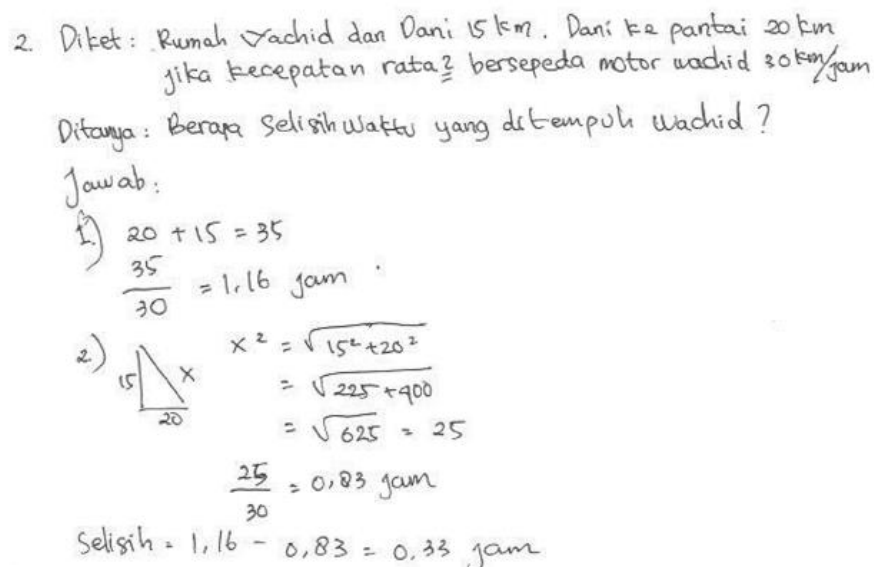 2. Diket : Rumah Wachid dan Dani 15 km. Dani ke pantai 20 km
jika kecepatan rata2 bersepeda motor wachid 30 km/jam
Ditanya : Berapa Selisih Waktu yang ditempuh Wachid ?
Jawab :
1.) 20 + 15 = 35
35/30 = 1,16 jam
2.) 15 x 20
x² = √15² + 20²
= √225 + 400
= √625 = 25
25/30 = 0,83 jam
Selisih = 1,16 - 0,83 = 0,33 jam